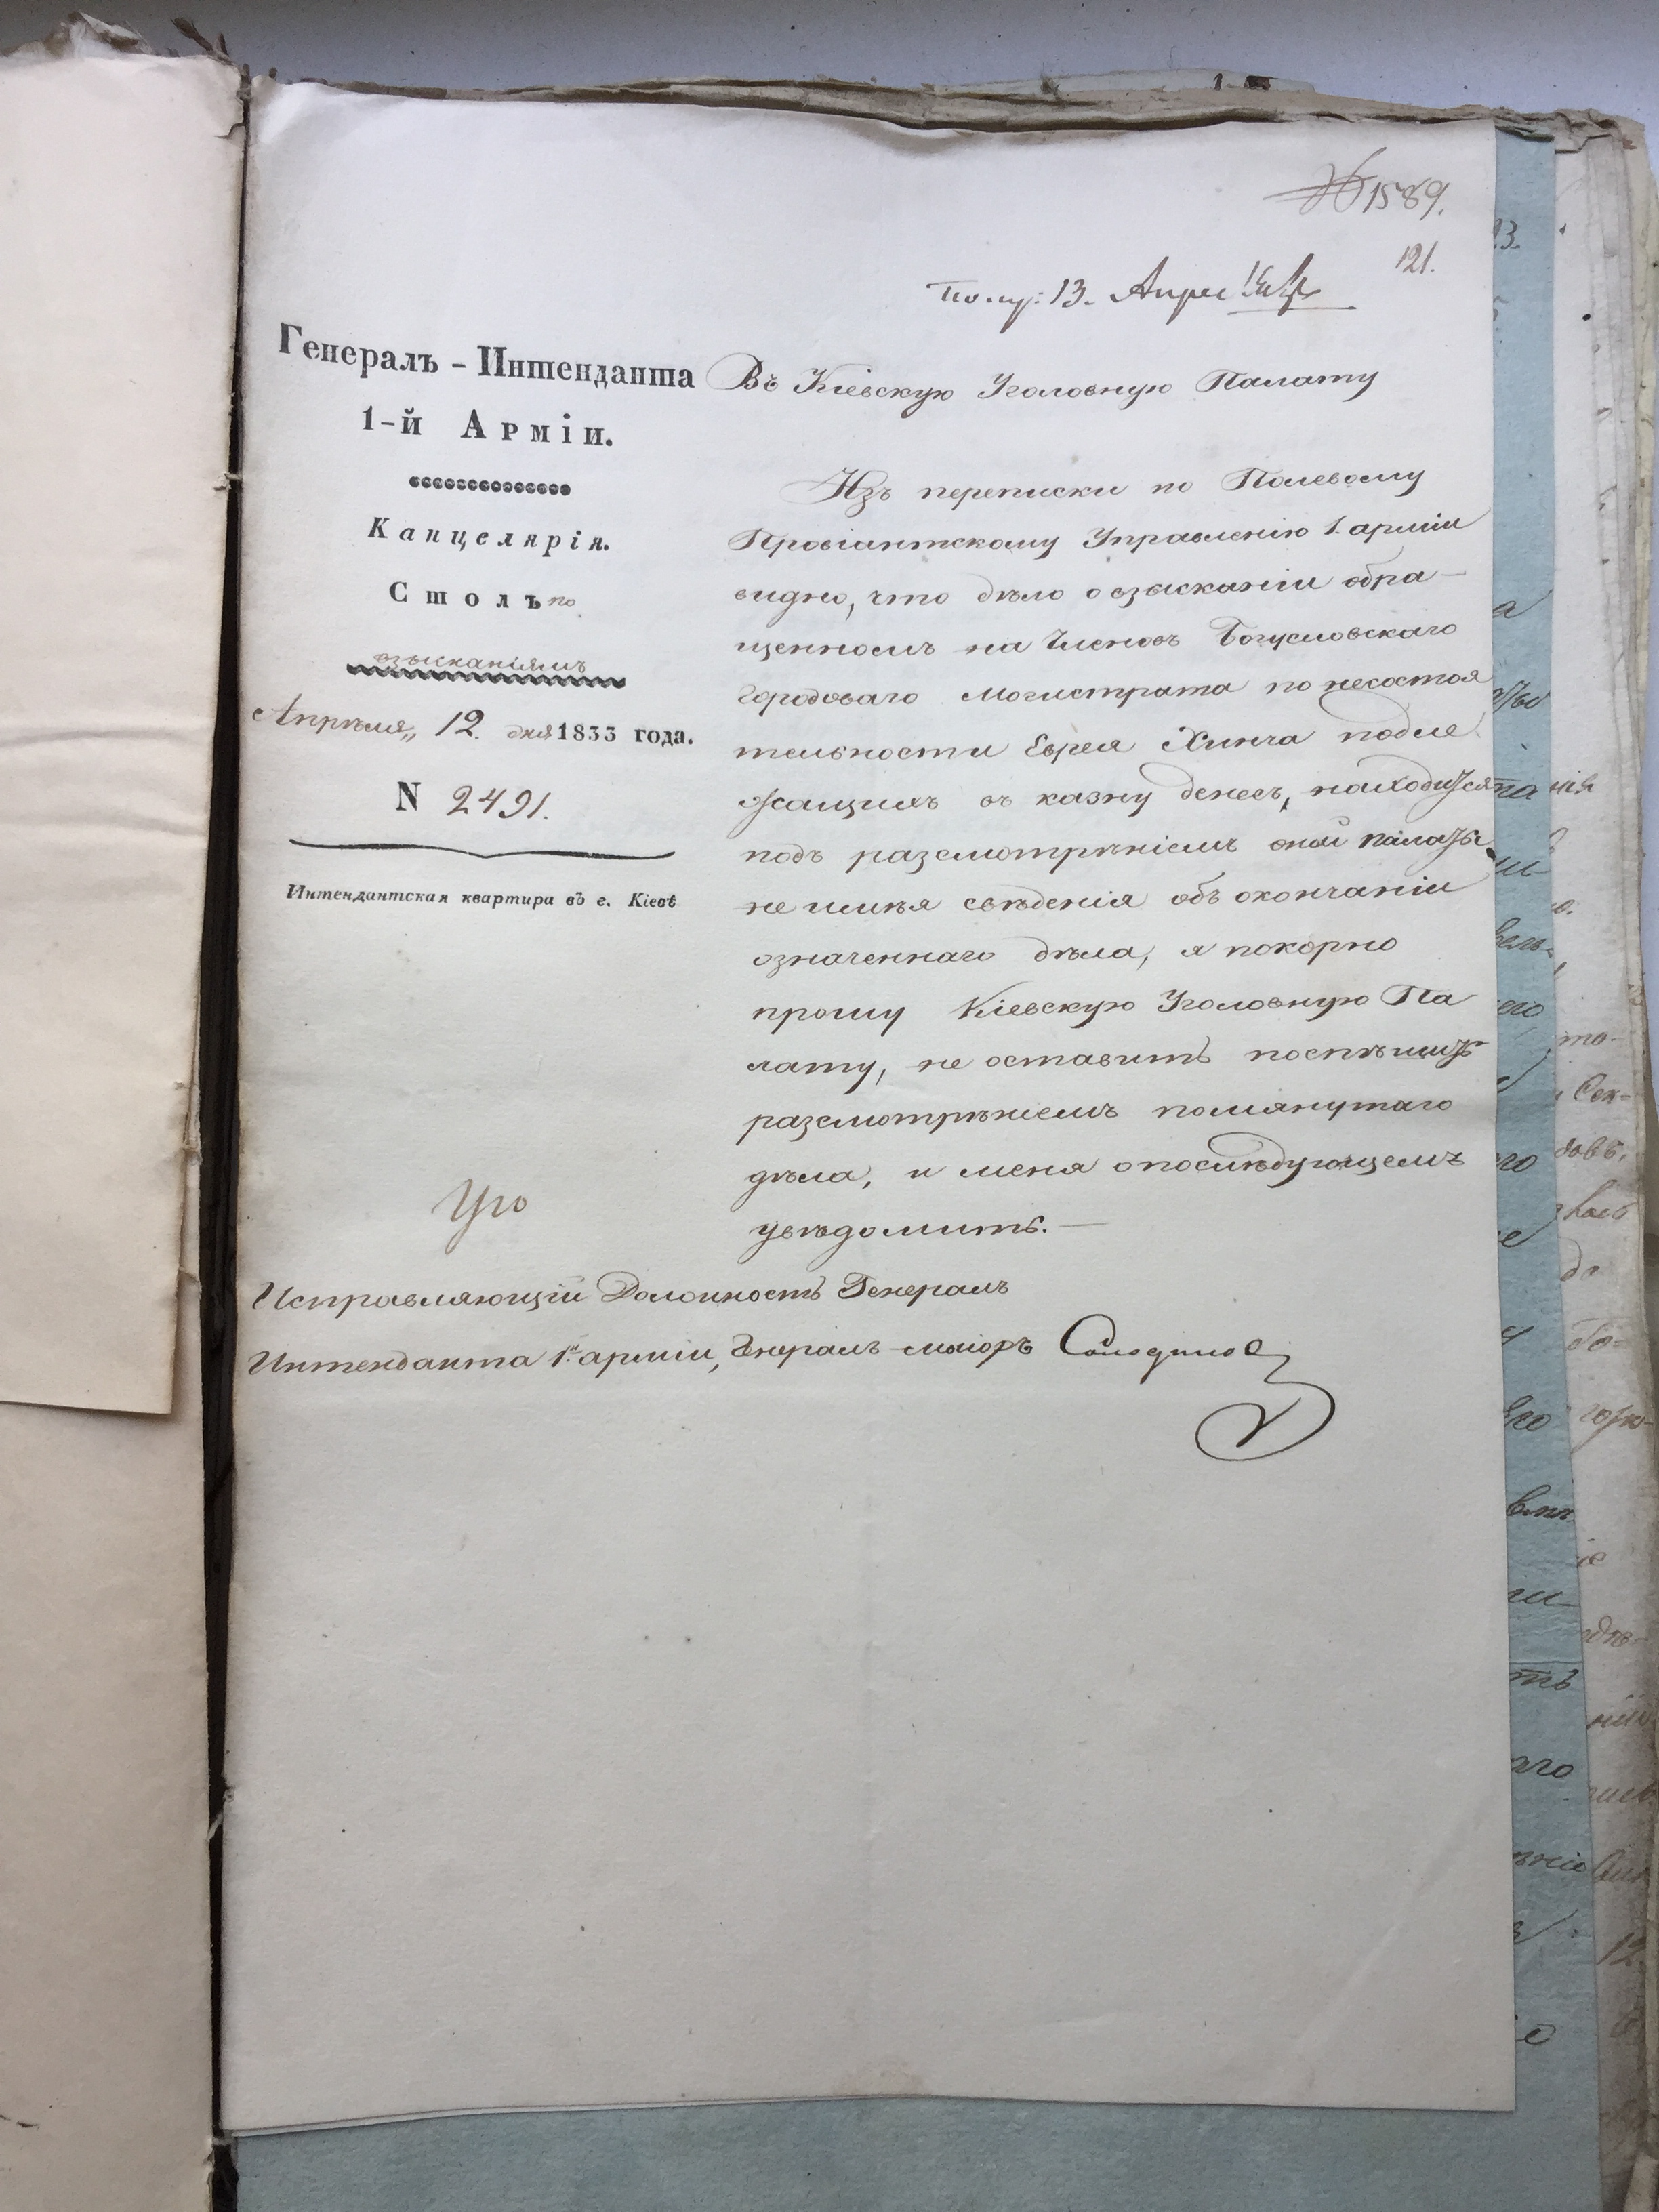 № 1589.
121.
Полу: 13. Апре
Генералъ - Интенданта
1-й Арміи.
Канцелярія.
Столъ по
взысканіямъ
Апрѣля, 12. дня 1833 года.
N 2491.
Интендантская квартира въ г. Кіевѣ
Въ Кіевскую Уголовную Палату
Изъ переписки по Полевому
Провіантскому Управленію 1. арміи
видно, что дѣло о взысканіи обра-
щенномъ на Членовъ Богуславскаго
Городоваго Магистрата по несостоя
тельности Еврея Хинча подле
жащихъ въ казну денегъ, находится
подъ разсмотрѣніемъ оной палаты,
не имѣя свѣденія объ окончаніи
означеннаго дѣла, я покорно
прошу Кіевскую Уголовную Па
лату, не оставить поспѣшить
разсмотрѣніемъ помянутаго
дѣла, и меня о послѣдующемъ
увѣдомить. —
Уго
Исправляющій Должность Генералъ
Интенданта 1й арміи, Генералъ-маіоръ